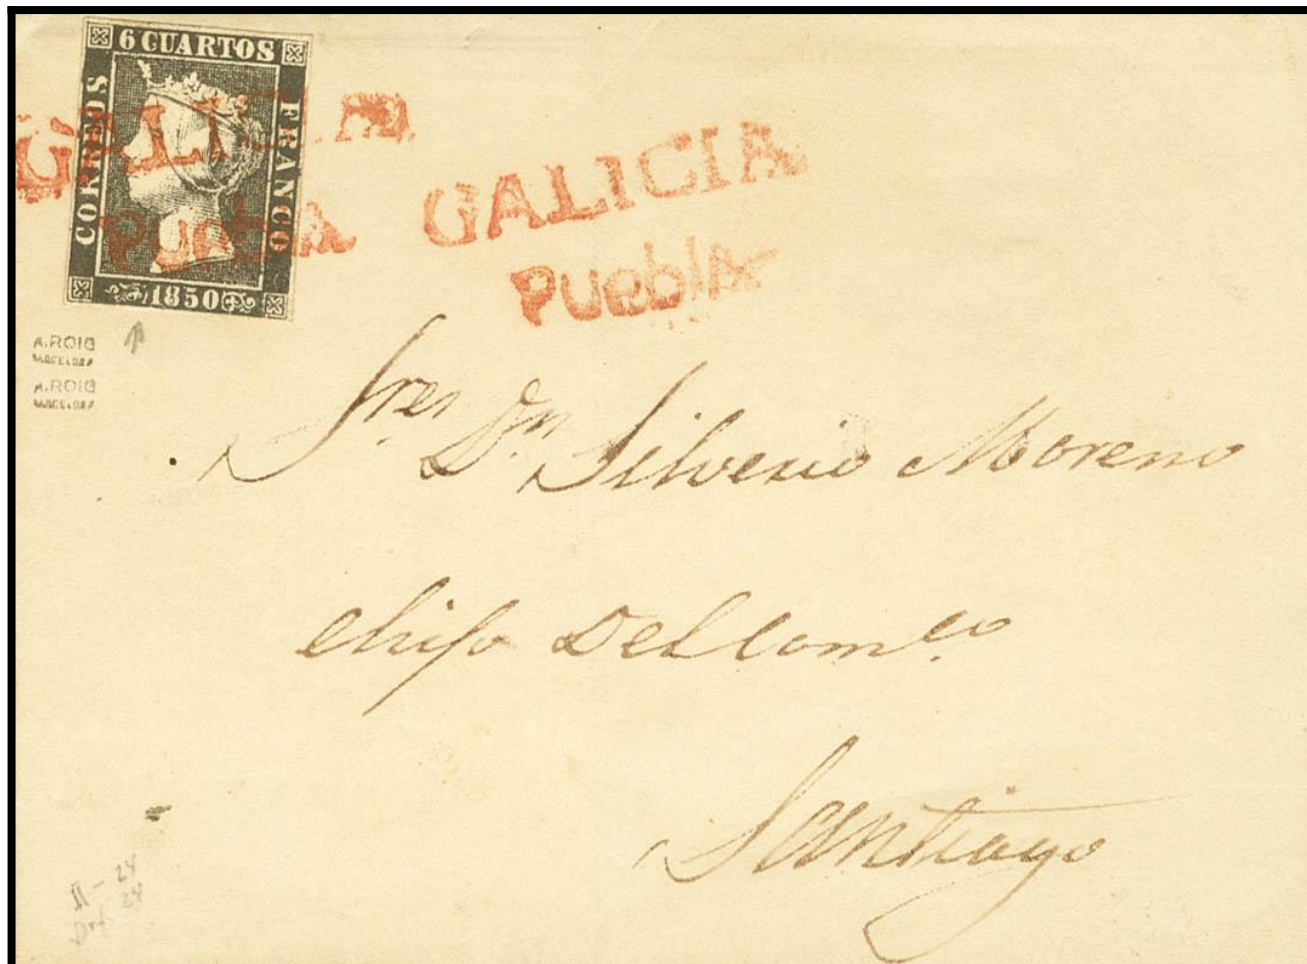 6 CUARTOS
CORREOS
FRANCO
1850
GALICIA
PuebLA
GALICIA
PuebLA
A.ROIG
BARCELONA
A.ROIG
BARCELONA
Sres Dn Silverio Moreno
e hijo Del Comco
Santiago
II - 24